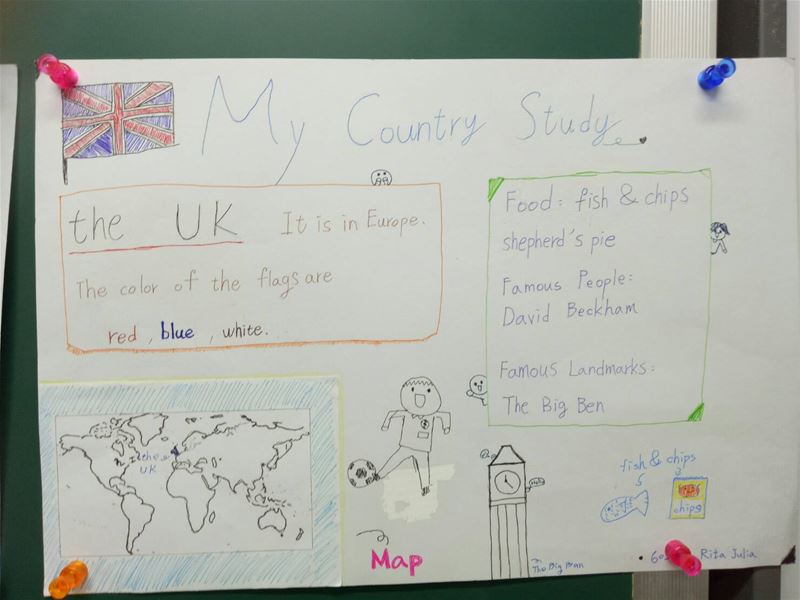 My Country Study
the UK It is in Europe.
The color of the flags are
red, blue, white.
Food: fish & chips
shepherd's pie
Famous People:
David Beckham
Famous Landmarks:
The Big Ben
the
UK
Map
The Big Ban
fish & chips
chips
Rita Julia